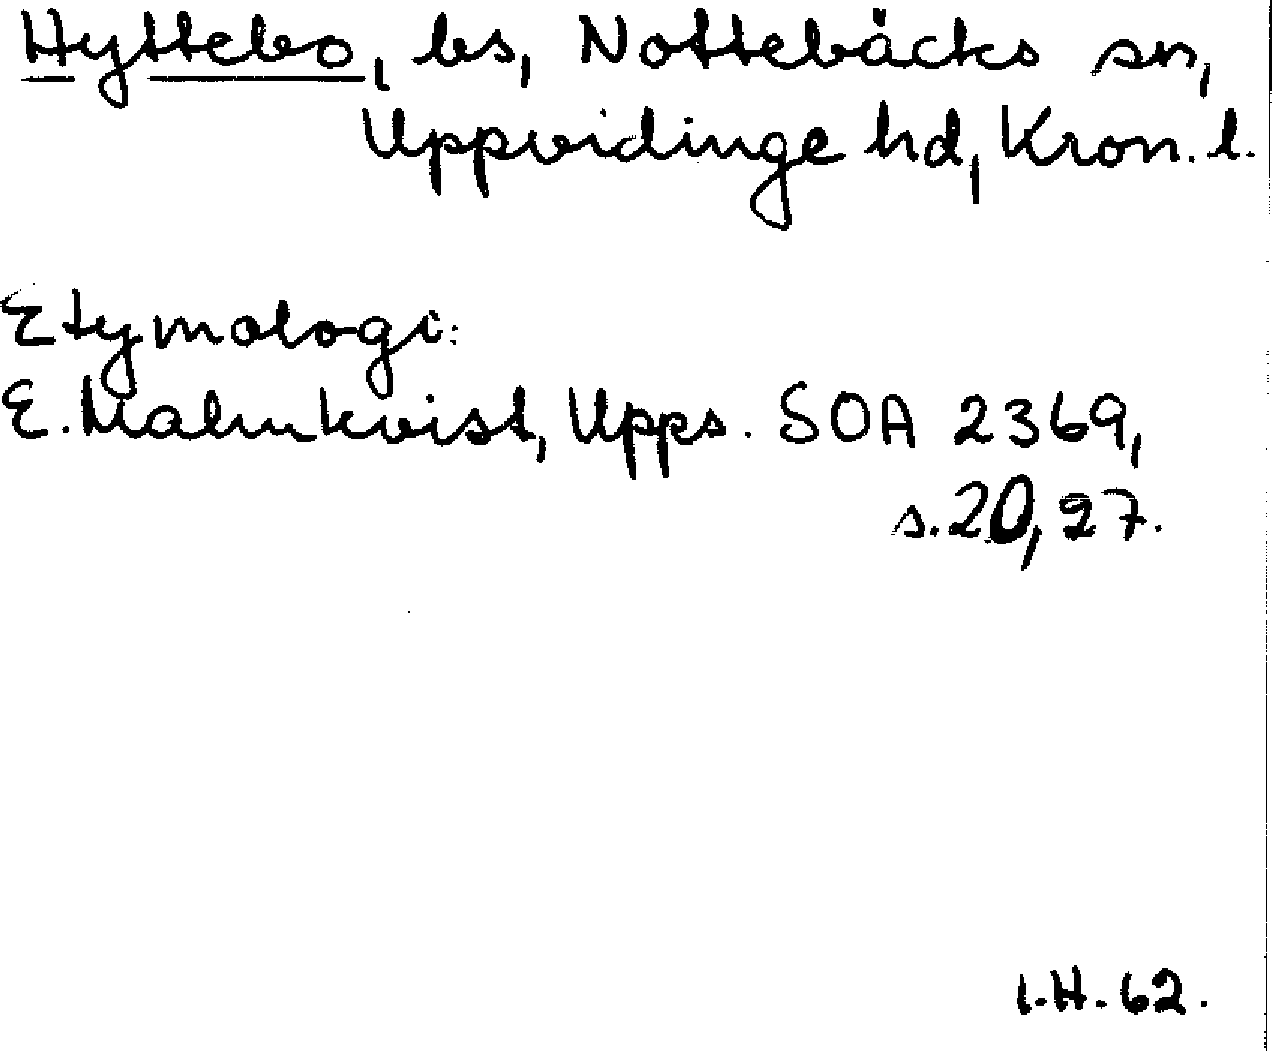 Hyttebo, bs, Nottebäcks sn,
Uppvidinge hd, Kron. l.
Etymologi:
E. Malmkvist, Upps. SOA 2369,
s. 20, 27.
I.H. 62.